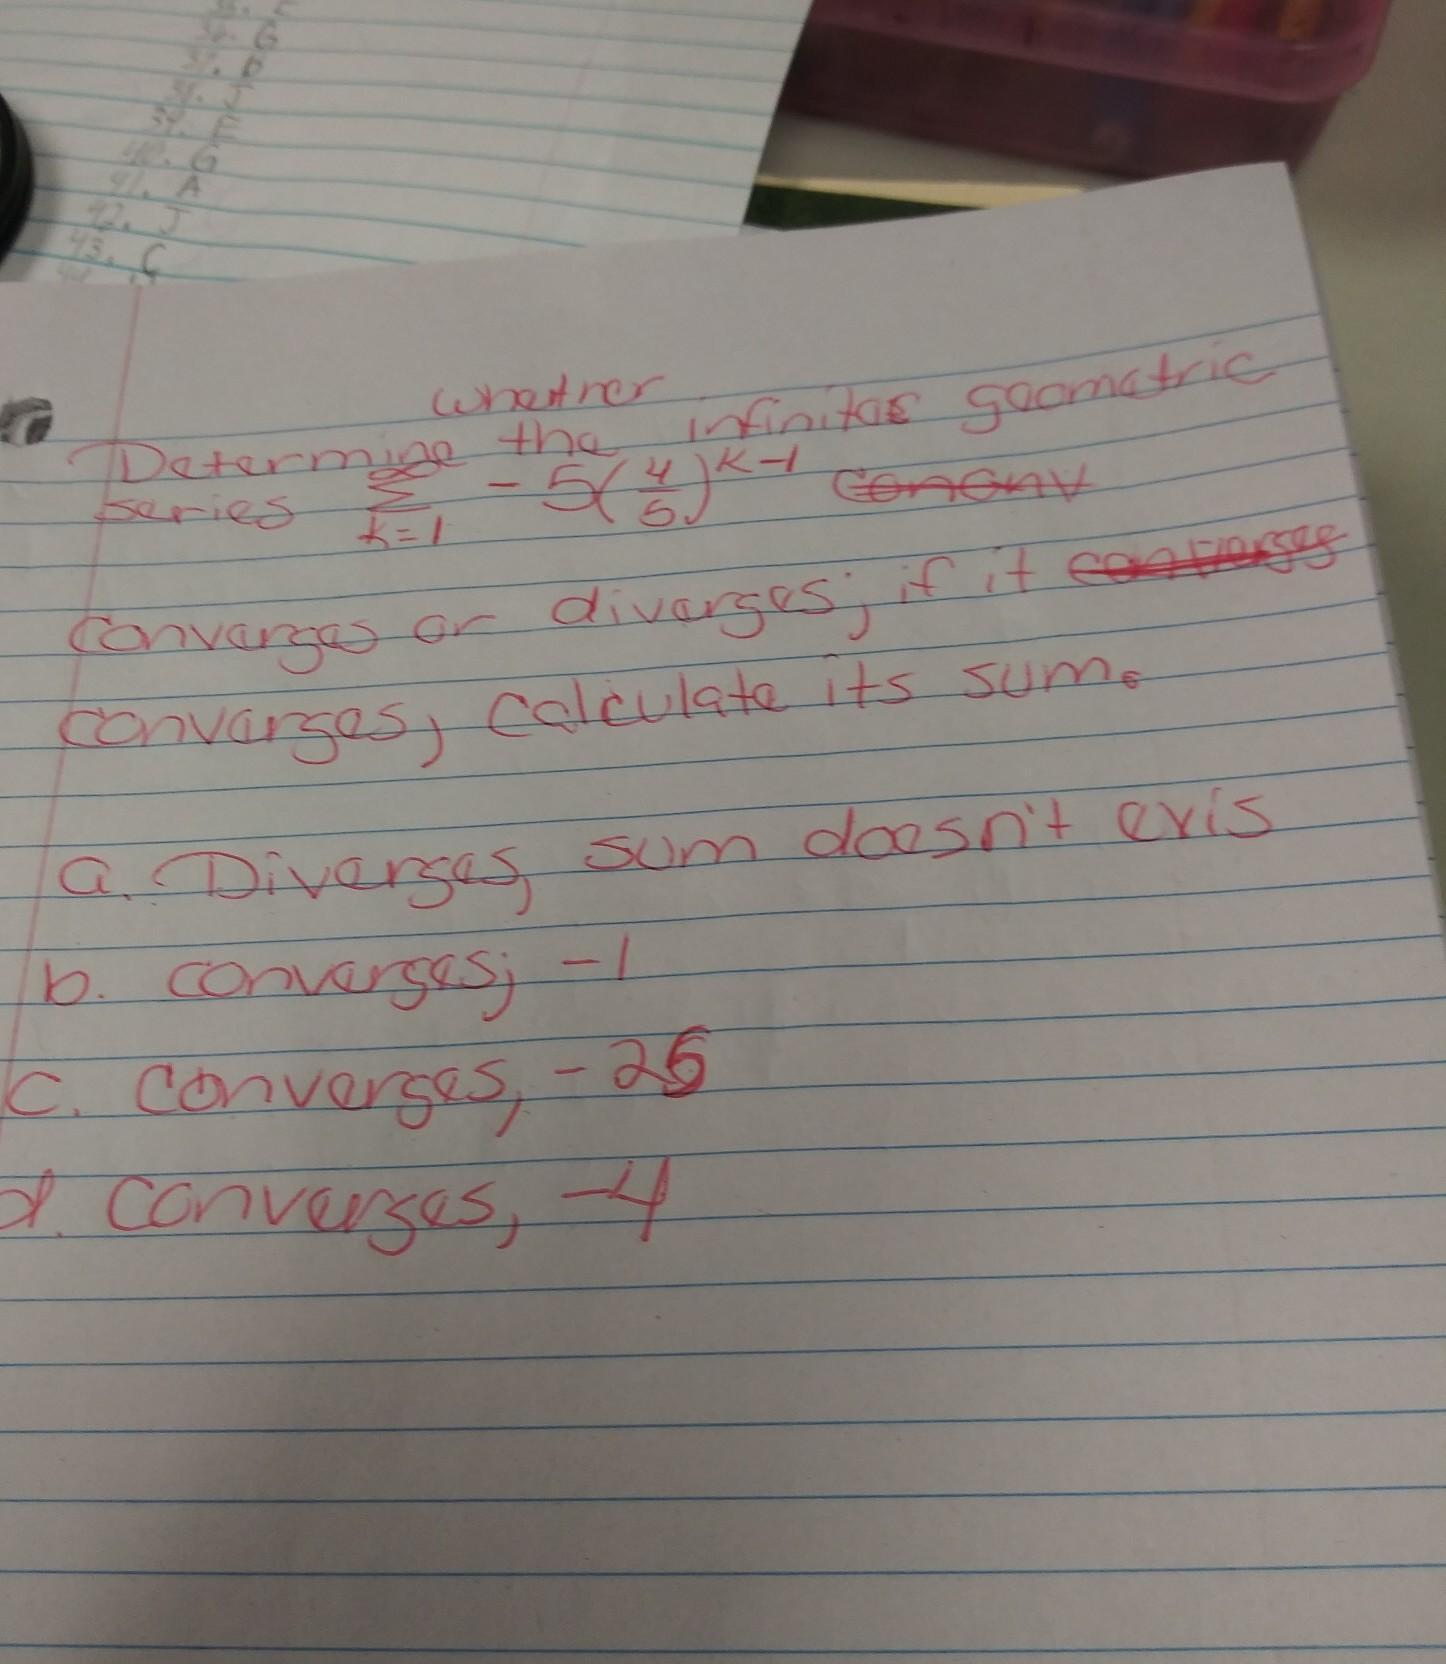 G
P
J
39. E
40. G
41. A
42. J
43. C
whether
Determine the infinitas geometric
series ∞ Σ k=1 -5(4/5)^k-1 conenv
converges or diverges; if it converges
converges, calculate its sum.
a. Diverges, sum doesn't exis
b. converges; -1
c. converges, -25
d. converges, -4